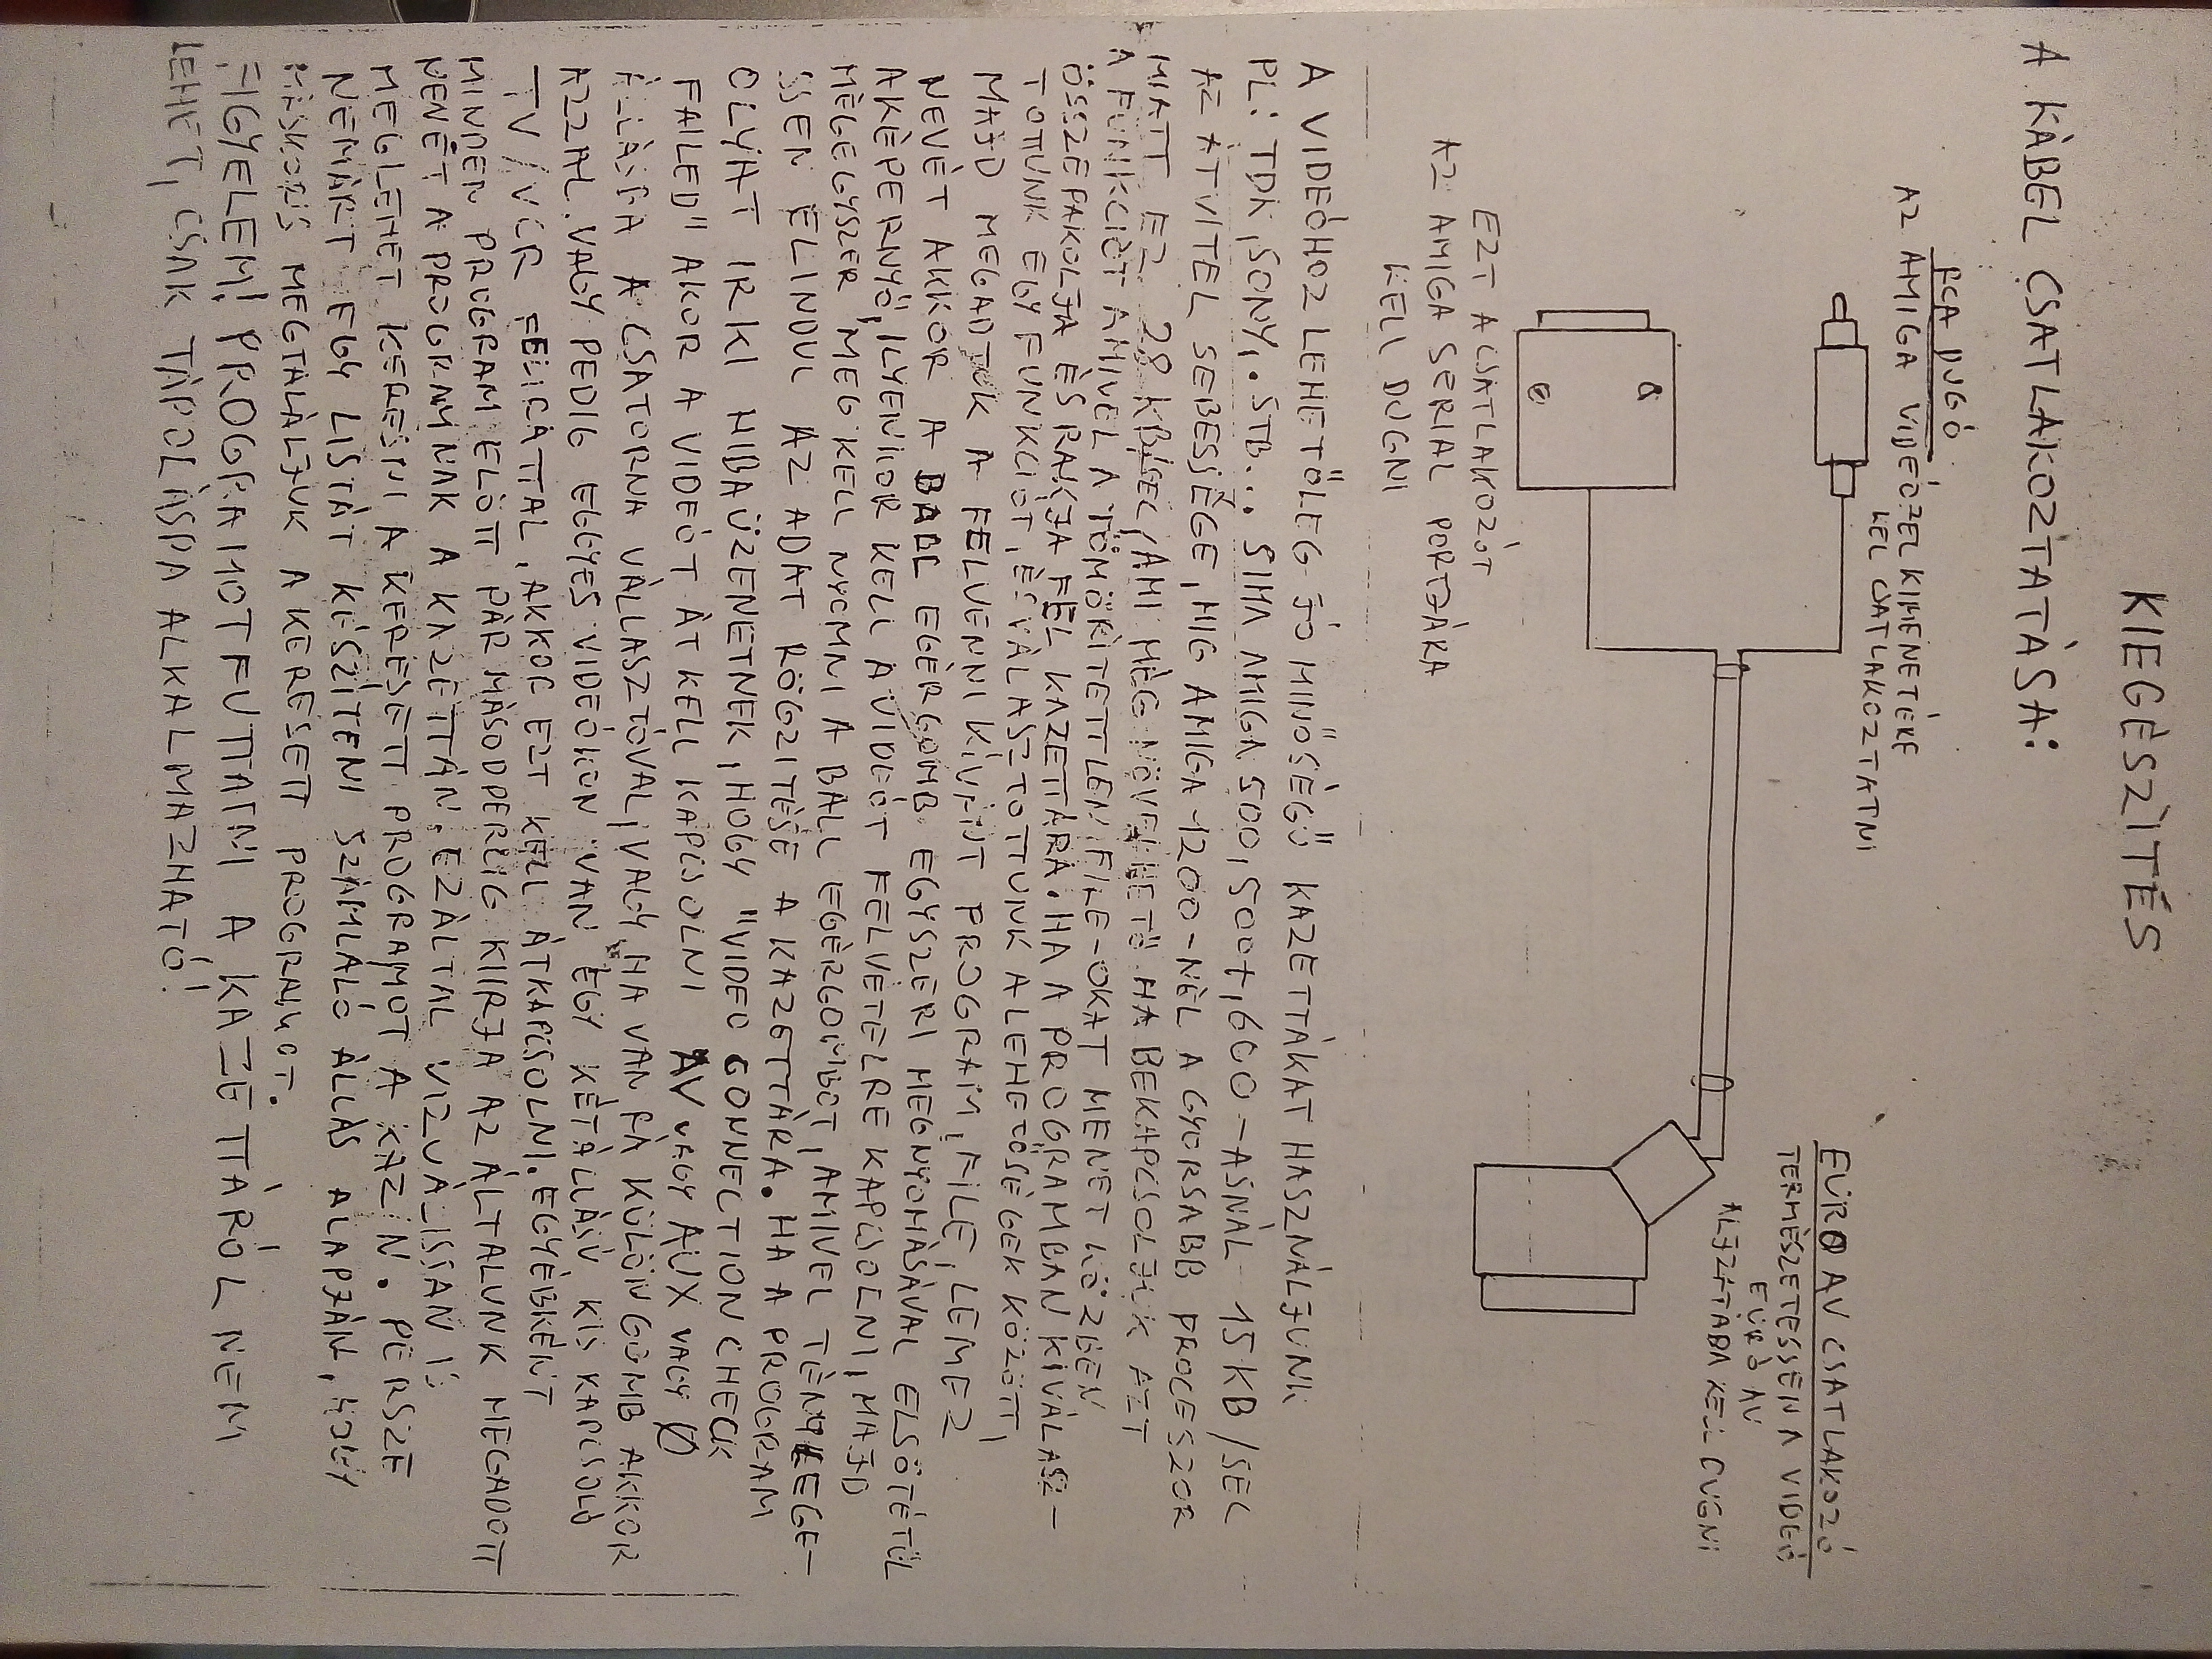 KIEGÉSZÍTÉS
A KÁBEL CSATLAKOZTATÁSA:
RCA DUGÓ
AZ AMIGA VIDEÓJEL KIMENETÉRE
KEL CSATLAKOZTATNI
EURO AV CSATLAKOZÓ
TERMÉSZETESSEN A VIDEÓ
EURÓ AV
ALJZATÁBA KELL DUGNI
EZT A CSATLAKOZÓT
AZ AMIGA SERIAL PORTJÁRA
KELL DUGNI
A VIDEÓHOZ LEHETŐLEG JÓ MINŐSÉGŰ KAZETTÁKAT HASZNÁLJUNK
PL: TDK, SONY,. STB... SIMA AMIGA 500, 500+, 600-ASNÁL 15 KB/SEC
AZ ÁTVITEL SEBESSÉGE, MIG AMIGA-1200-NÉL A GYORSABB PROCESSZOR
MIATT EZ 28 KB/SEC, AMI MÉG NÖVELHETŐ HA BEKAPCSOLJUK AZT
A FUNKCIÓT AMIVEL A TÖMÖRITETTLEN FILE-OKAT MENET KÖZBEN
ÖSSZEPAKOLJA ÉS RAKJA FEL KAZETTÁRA. HA A PROGRAMBAN KIVÁLASZ-
TOTTUNK EGY FUNKCIÓT, ÉS VÁLASZTOTTUNK A LEHETŐSÉGEK KÖZÖTT,
MAJD MEGADTUK A FELVENNI KÍVÁNT PROGRAM, FILE, LEMEZ
NEVÉT AKKOR A BALL EGÉRGOMB EGYSZERI MEGNYOMÁSÁVAL ELSÖTÉTÜL
A KÉPERNYŐ, ILYENKOR KELL A VIDEÓT FELVÉTELRE KAPCSOLNI, MAJD
MÉGEGYSZER MEG KELL NYOMNI A BALL EGÉRGOMBOT, AMIVEL TÉNYLEGE-
SSEN ELINDUL AZ ADAT RÖGZITÉSE A KAZETTÁRA. HA A PROGRAM
OLYAT IR KI HIBAÜZENETNEK, HOGY "VIDEO CONNECTION CHECK
FAILED" AKOR A VIDEÓT ÁT KELL KAPCSOLNI AV VAGY AUX VAGY 0
ÁLLÁSBA A CSATORNA VÁLLASZTÓVAL, VAGY HA VAN RÁ KÜLÖN GOMB AKKOR
AZZAL. VAGY PEDIG EGGYES VIDEÓKON VAN EGY KÉTÁLLÁSÚ KIS KAPCSOLÓ
TV/VCR FELIRATTAL, AKKOR EZT KELL ÁTKAPCSOLNI. EGYÉBKÉNT
MINDEN PROGRAM ELŐTT PÁR MÁSODPERCIG KIIRJA AZ ÁLTALUNK MEGADOTT
NEVÉT A PROGRAMNAK A KAZETTÁN. EZÁLTAL VIZUÁLISSAN IS
MEG LEHET KERESNI A KERESETT PROGRAMOT A KAZIN. PERSZE
NEMÁRT EGY LISTÁT KÉSZÍTENI SZÁMLÁLÓ ÁLLÁS ALAPJÁN, HOGY
MÁSKOR IS MEGTALÁLJUK A KERESETT PROGRAMOT.
FIGYELEM! PROGRAMOT FUTTATNI A KAZETTÁRÓL NEM
LEHET, CSAK TÁROLÁSRA ALKALMAZHATÓ!